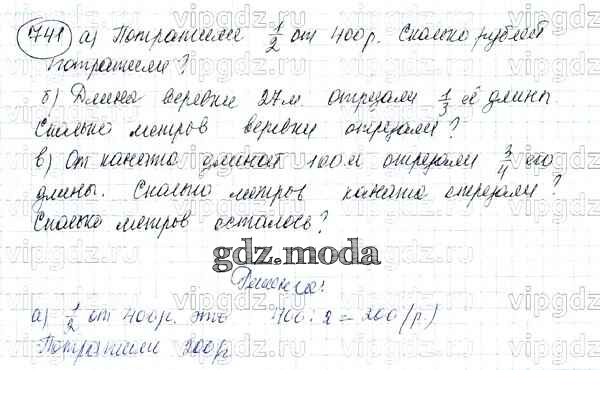 741 а) Потратили 1/2 от 400р. Сколько рублей
потратили?
б) Длина веревки 27м отрезали 1/3 её длины.
Сколько метров веревки отрезали?
в) От каната длиной 100м отрезали 3/4 его
длины. Сколько метров каната отрезали?
Сколько метров осталось?
gdz.moda
Решение:
а) 1/2 от 400р. это 400:2=200(р.)
Потратили 200р